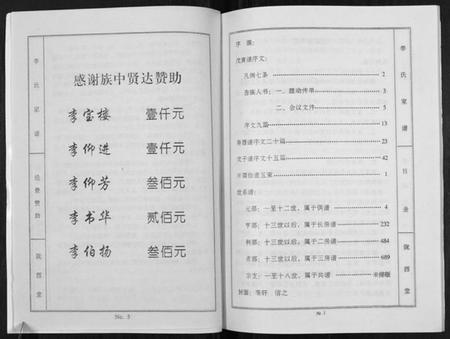 李氏家谱
经费赞助
陇西堂
感谢族中贤达赞助
李宝楼 壹仟元
李仰进 壹仟元
李仰芳 叁佰元
李书华 贰佰元
李伯扬 叁佰元
No. 3
序 集:
戊寅谱序文:
凡例七条 2
告族人书: 一、鼓动传单 3
二、会议文件 5
序文九篇 13
序文二十篇 23
谱序文十五篇 42
1
世系谱:
元部: 一至十二世, 属于俱谱 4
亨部: 十三世以后, 属于长房谱 232
利部: 十三世以后, 属于二房谱 484
贞部: 十三世以后, 属于三房谱 689
宗支: 一至十八世, 属于共谱
李氏家谱
目录
陇西堂
№ 1